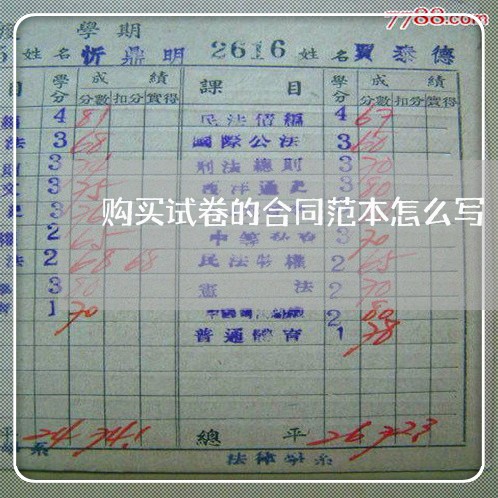 7788.com
學期
5 姓名 忻鼎明 2616 姓名 賈泰德
目 學分 成績 課目 學分 成績
分數 扣分 實得 分數 扣分 實得
4 81 民法債編 4 67
法 3 68 國際公法 3 60
3 刑法總則 3 70
文 3 75 西洋通史 3 80
购买试卷的合同范本怎么写
2 65 3 70
法 2 68 68 民法物權 2 65
3 80 憲法 2 70
1 70 2 80
普通體育 1 78
平 24 74.1 總平 26 72.3
系 法律學系